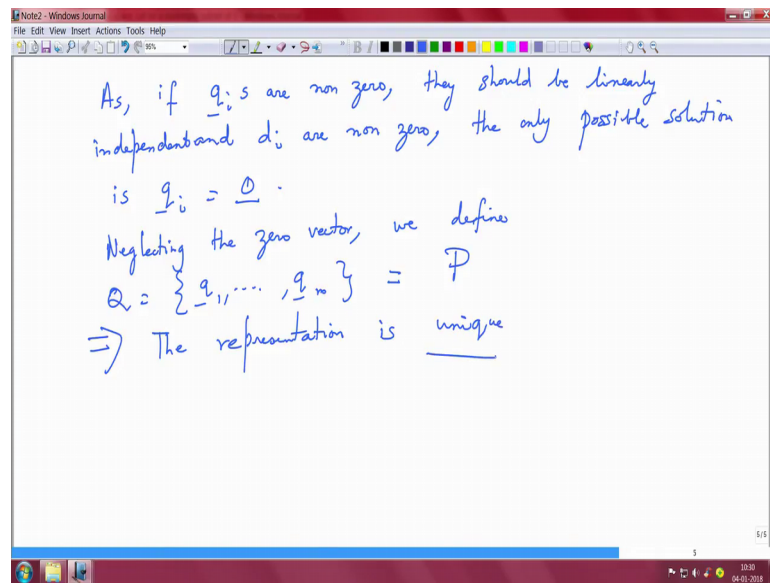 Note2 - Windows Journal
File Edit View Insert Actions Tools Help
95%
As, if q_i s are non zero, they should be linearly
independent and d_i are non zero, the only possible solution
is q_i = 0.
Neglecting the zero vector, we define
Q = {q_1, ...., q_m} = P
⇒ The representation is unique
5/5
5
10:30
04-01-2018